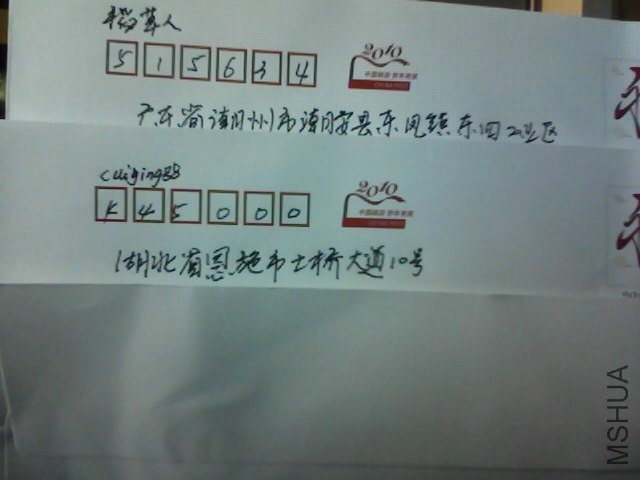 稻草人
5 1 5 6 3 4
2010
中国邮政 贺年有奖
广东省潮州市潮安县东凤镇东四工业区
cuijing88
4 4 5 0 0 0
2010
中国邮政 贺年有奖
湖北省恩施市土桥大道10号
MSHUA